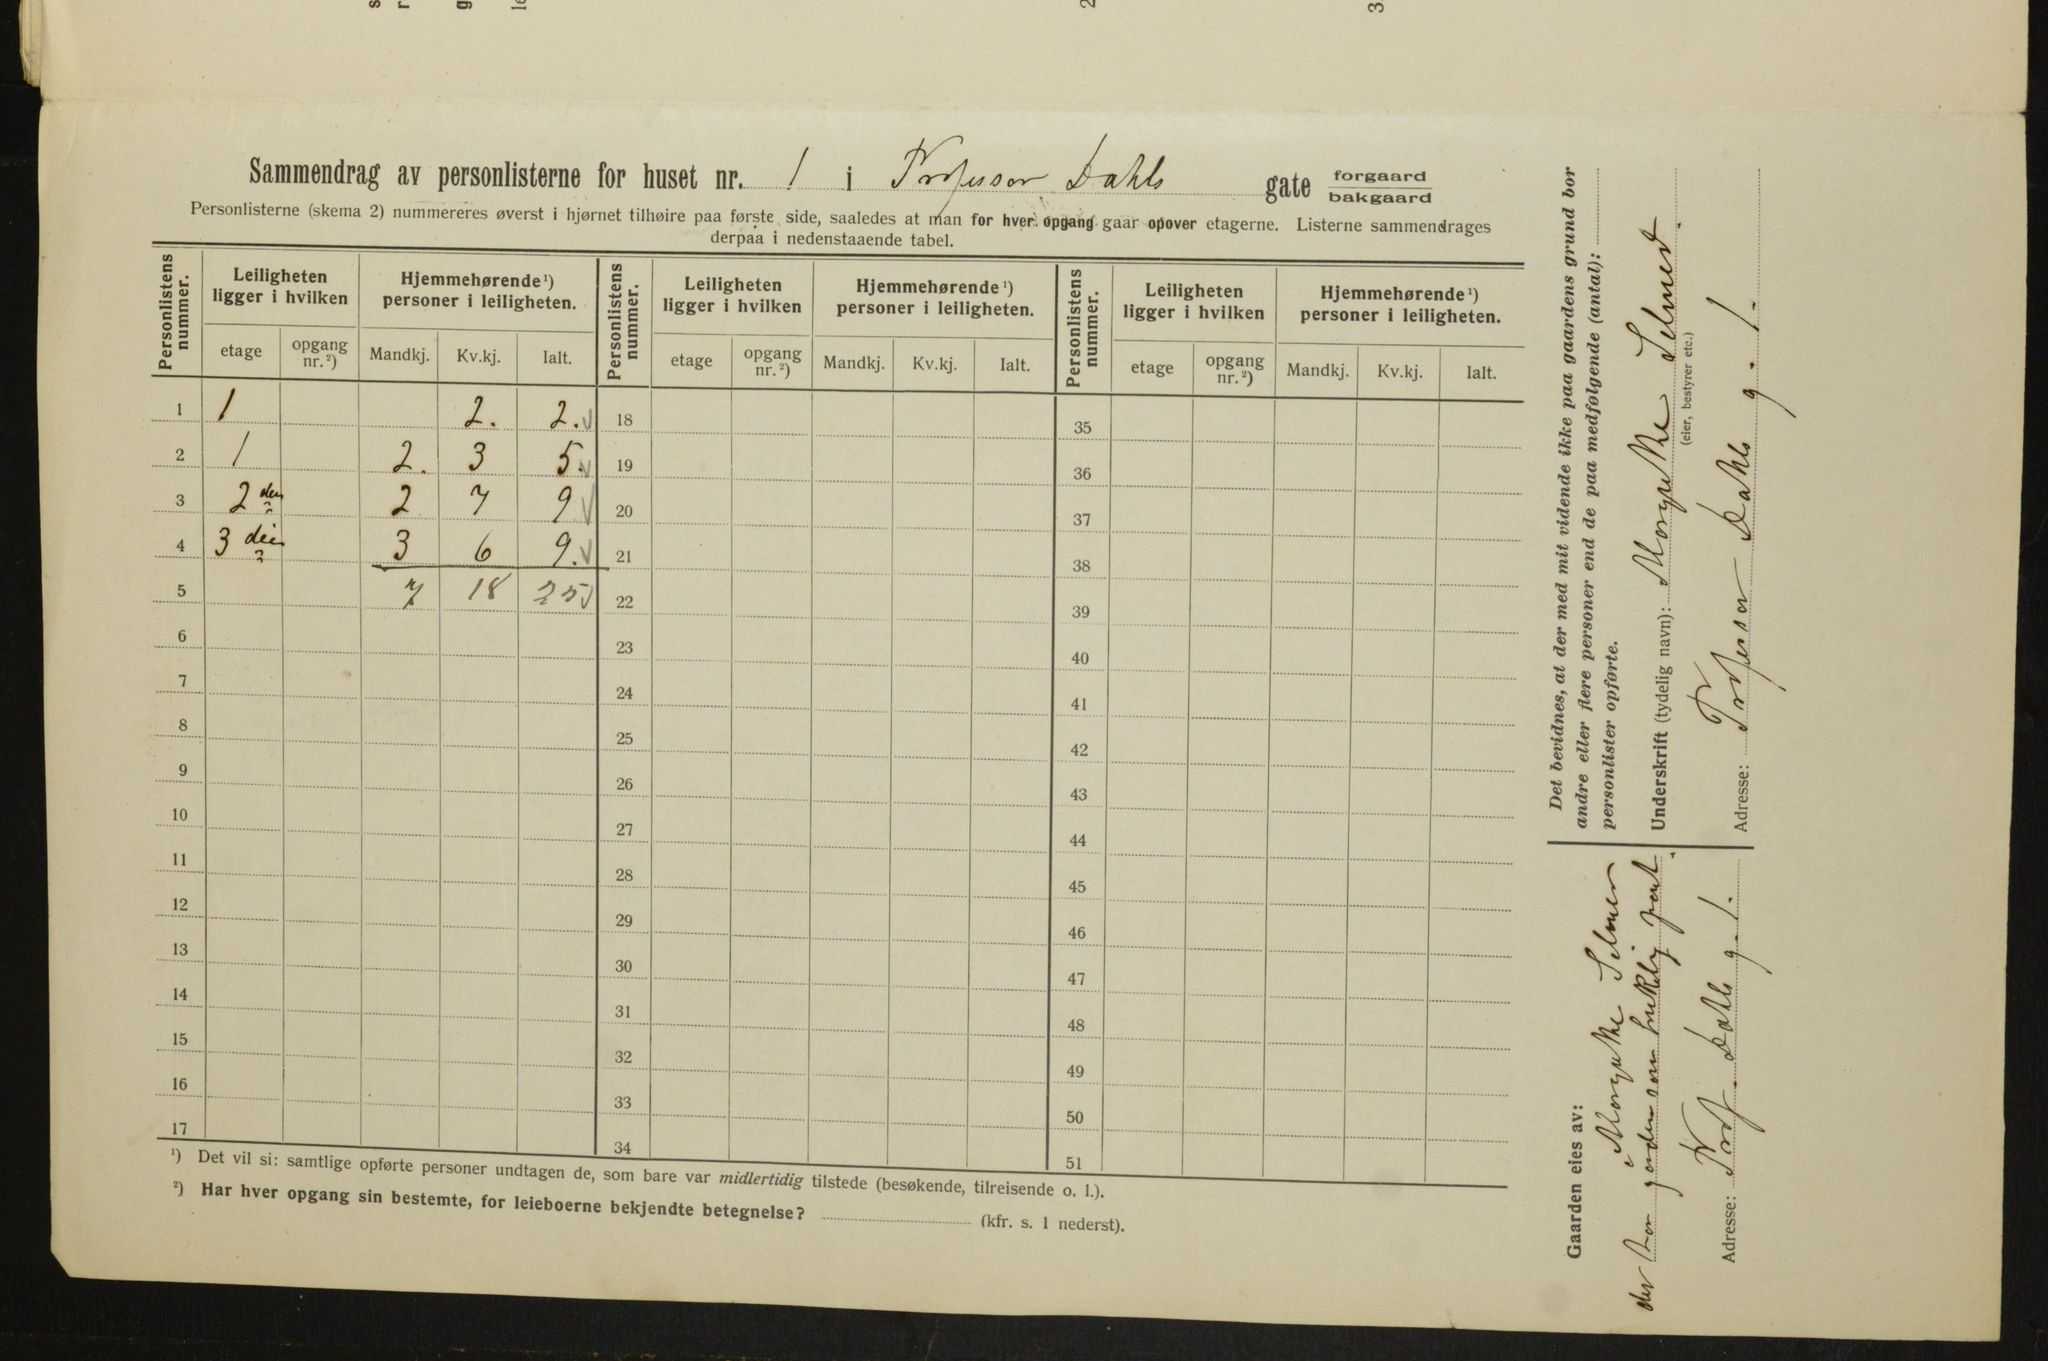 Sammendrag av personlisterne for huset nr. 1 i Professor Dahls gate forgaard
bakgaard
Personlisterne (skema 2) nummereres øverst i hjørnet tilhøire paa første side, saaledes at man for hver opgang gaar opover etagerne. Listerne sammendrages
derpaa i nedenstaaende tabel.
Personlistens nummer. Leiligheten ligger i hvilken Hjemmehørende ¹) personer i leiligheten. Personlistens nummer. Leiligheten ligger i hvilken Hjemmehørende ¹) personer i leiligheten. Personlistens nummer. Leiligheten ligger i hvilken Hjemmehørende ¹) personer i leiligheten.
etage opgang nr. ²) Mandkj. Kv.kj. Ialt. etage opgang nr. ²) Mandkj. Kv.kj. Ialt. etage opgang nr. ²) Mandkj. Kv.kj. Ialt.
1 1 2. 2. 18 35
2 1 2. 3 5. 19 36
3 2den 2 7 9 20 37
4 3die 3 6 9. 21 38
5 7 18 25 22 39
6 23 40
7 24 41
8 25 42
9 26 43
10 27 44
11 28 45
12 29 46
13 30 47
14 31 48
15 32 49
16 33 50
17 34 51
¹) Det vil si: samtlige opførte personer undtagen de, som bare var midlertidig tilstede (besøkende, tilreisende o. l.).
²) Har hver opgang sin bestemte, for leieboerne bekjendte betegnelse? (kfr. s. 1 nederst).
Det bevidnes, at der med mit vidende ikke paa gaardens grund bor
andre eller flere personer end de paa medfølgende (antal):
personlister opførte.
Underskrift (tydelig navn): Selmer
(eier, bestyrer etc.)
Adresse: Professor Dahls g. 1.
Gaarden eies av:
Selmer
der har som
Adresse: Prof. Dahls g. 1.